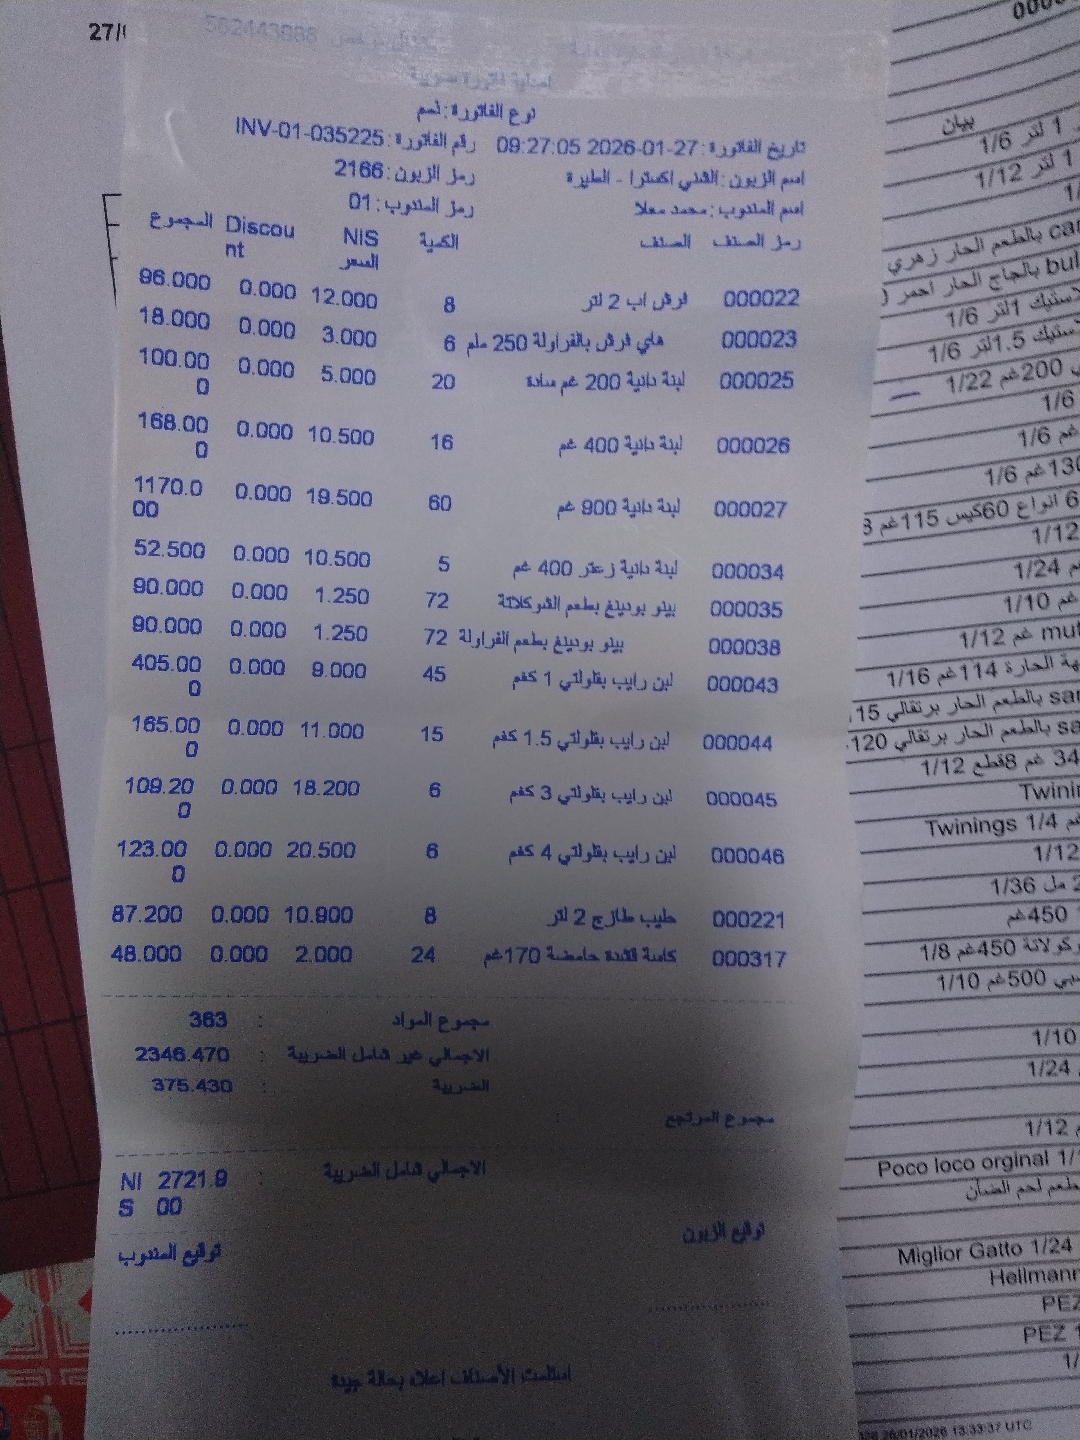 27/0
562443986
اصلية فاتورة ضريبية
نوع الفاتورة : ذمم
تاريخ الفاتورة : 27-01-2026 09:27:05 رقم الفاتورة : INV-01-035225
اسم الزبون : الشني اكسترا - الطيرة رمز الزبون : 2166
اسم المندوب : محمد معلا رمز المندوب : 01
رمز الصنف الصنف الكمية NIS السعر Discount المجموع
000022 فرش اب 2 لتر 8 12.000 0.000 96.000
000023 هاي فرش بالفراولة 250 ملم 6 3.000 0.000 18.000
000025 لبنة دانية 200 غم سادة 20 5.000 0.000 100.000
000026 لبنة دانية 400 غم 16 10.500 0.000 168.000
000027 لبنة دانية 900 غم 60 19.500 0.000 1170.000
000034 لبنة دانية زعتر 400 غم 5 10.500 0.000 52.500
000035 بينو بودينغ بطعم الشوكلاتة 72 1.250 0.000 90.000
000038 بينو بودينغ بطعم الفراولة 72 1.250 0.000 90.000
000043 لبن رايب بقلولتي 1 كغم 45 9.000 0.000 405.000
000044 لبن رايب بقلولتي 1.5 كغم 15 11.000 0.000 165.000
000045 لبن رايب بقلولتي 3 كغم 6 18.200 0.000 109.200
000046 لبن رايب بقلولتي 4 كغم 6 20.500 0.000 123.000
000221 حليب طازج 2 لتر 8 10.900 0.000 87.200
000317 كاسة قشدة حامضة 170غم 24 2.000 0.000 48.000
مجموع المواد : 363
الاجمالي غير شامل الضريبة : 2346.470
الضريبة : 375.430
مجموع المرتجع :
الاجمالي شامل الضريبة : 2721.900 NIS
توقيع الزبون توقيع المندوب
استلمت الأصناف اعلاه بحالة جيدة
بيان
1 لتر 1/6
1 لتر 1/12
بالطعم الحار زهري
بالجاج الحار احمر
1لتر 1/6
1.5لتر 1/6
200غم 1/22
1/6
غم 1/6
1/6
6 انواع 60كيس 115غم
1/12
1/24
غم 1/10
غم 1/12
الحارة 114غم 1/16
بالطعم الحار برتقالي
بالطعم الحار برتقالي 120
غم 8قطع 1/12
Twinings 1/4
1/12
مل 1/36
450غم
450غم 1/8
500غم 1/10
1/10
1/24
1/12
Poco loco orginal
طعم لحم الضأن
Miglior Gatto 1/24
PEZ
PEZ
26/01/2026 13:33:37 UTC